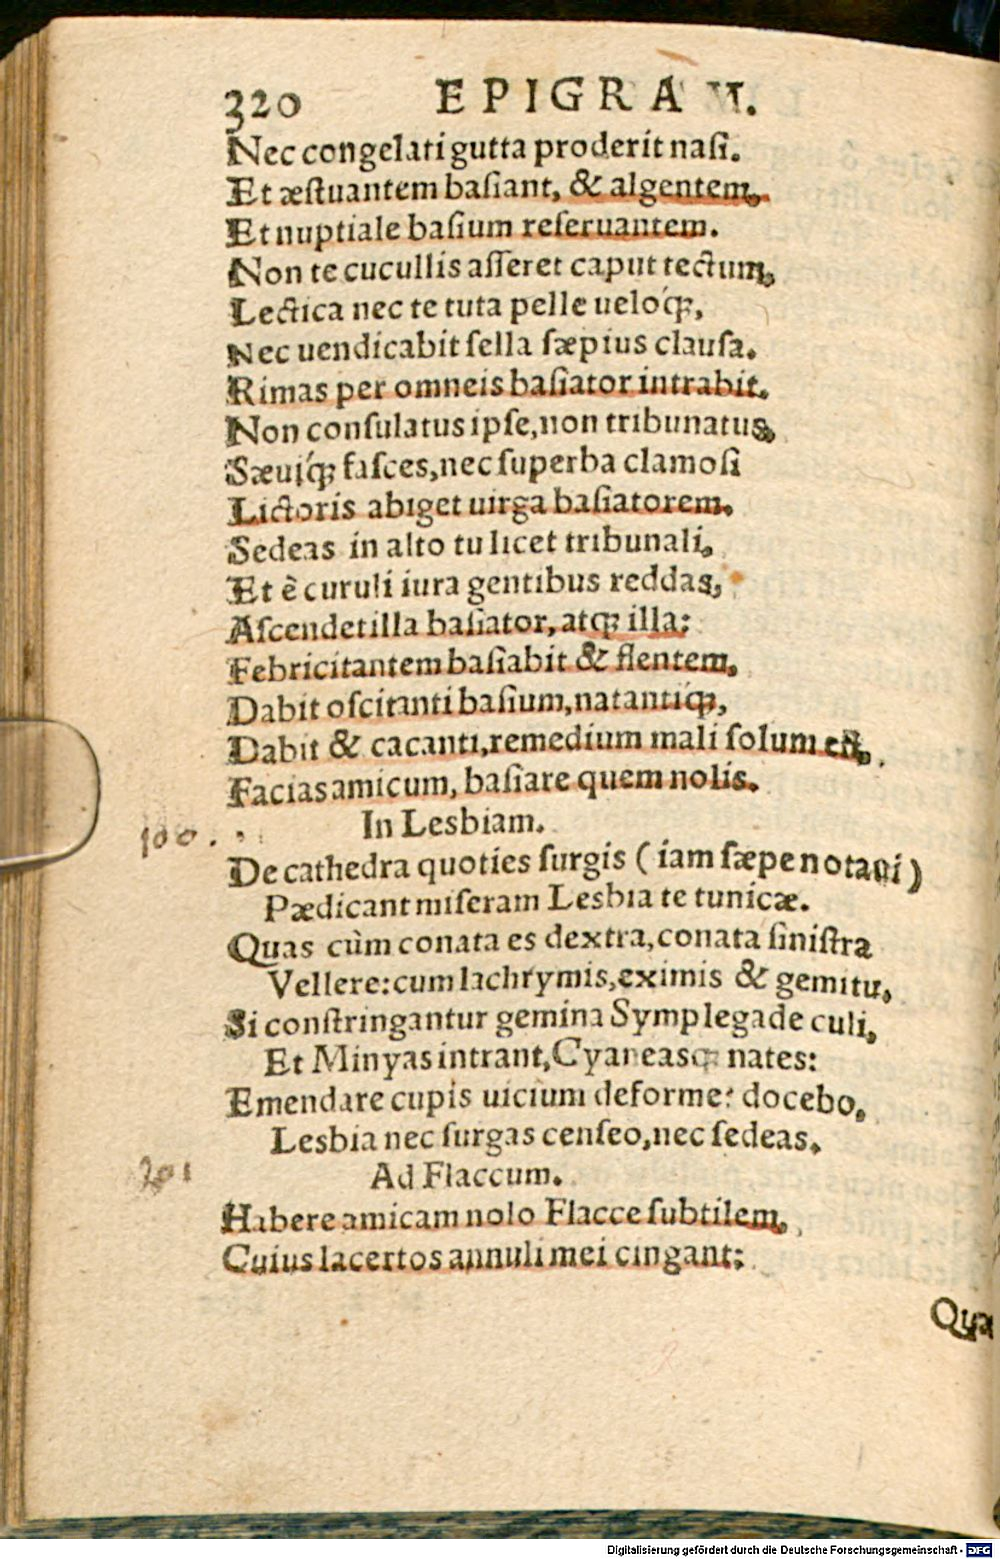 320 EPIGRAM.
Nec congelati gutta proderit nasi.
Et æstuantem basiant, & algentem,
Et nuptiale basium reseruantem.
Non te cucullis asseret caput tectum,
Lectica nec te tuta pelle ueloq́;,
Nec uendicabit sella sæpius clausa.
Rimas per omneis basiator intrabit.
Non consulatus ipse, non tribunatus,
Sæuiq́; fasces, nec superba clamosi
Lictoris abiget uirga basiatorem.
Sedeas in alto tu licet tribunali,
Et è curuli iura gentibus reddas,
Ascendet illa basiator, atq; illa:
Febricitantem basiabit & flentem,
Dabit oscitanti basium, natantiq́;,
Dabit & cacanti, remedium mali solum est,
Facias amicum, basiare quem nolis.
In Lesbiam.
100.
De cathedra quoties surgis (iam sæpe notaui)
Pædicant miseram Lesbia te tunicæ.
Quas cùm conata es dextra, conata sinistra
Vellere: cum lachrymis, eximis & gemitu,
Si constringantur gemina Symplegade culi,
Et Minyas intrant, Cyaneasq; nates:
Emendare cupis uicium deforme? docebo,
Lesbia nec surgas censeo, nec sedeas.
201
Ad Flaccum.
Habere amicam nolo Flacce subtilem,
Cuius lacertos annuli mei cingant:
Quæ
Digitalisierung gefördert durch die Deutsche Forschungsgemeinschaft - DFG